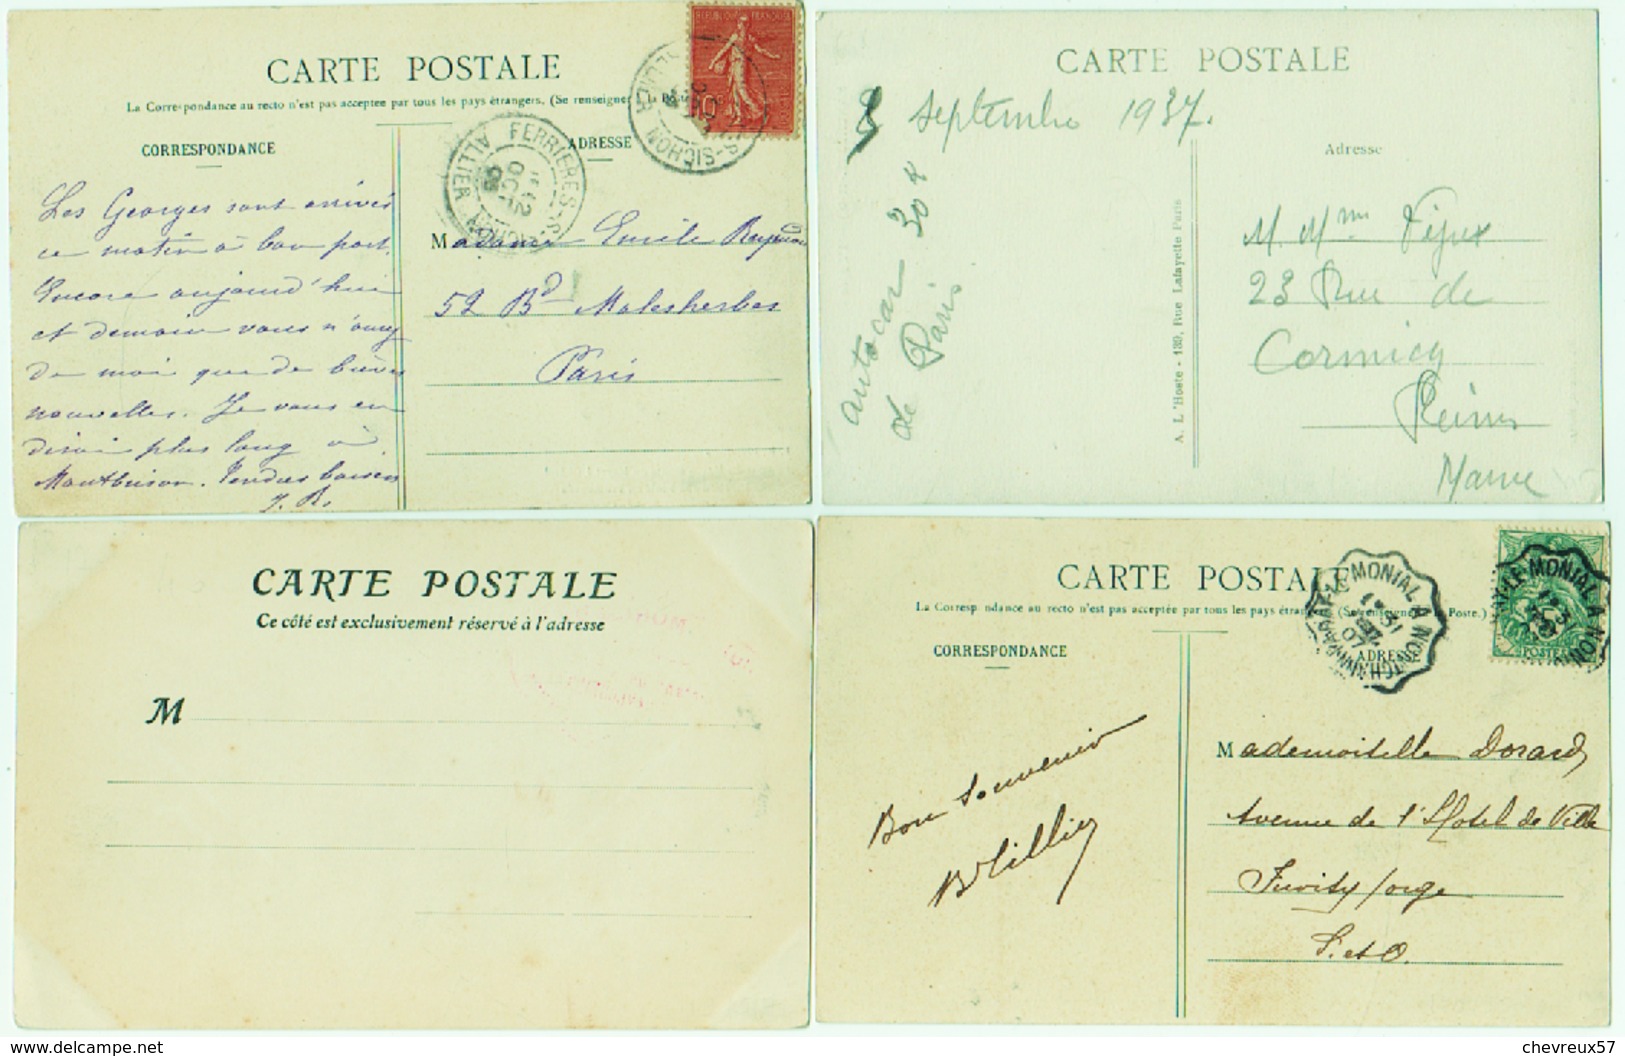 CARTE POSTALE
La Correspondance au recto n'est pas acceptée par tous les pays étrangers. (Se renseigner
CORRESPONDANCE
ADRESSE
REPUBLIQUE FRANÇAISE
10
FERRIERES-S-SICHON
ALLIER
S-SICHON
Les Georges sont arrivés
ce matin à bon port.
Encore aujourd'hui
et demain vous n'aurez
de moi que de brèves
nouvelles. Je vous en
dirai plus long à
Montbrison. Tendres baisers
J. R.
Madame Emile
52 Bd Malesherbes
Paris
CARTE POSTALE
8 septembre 1937.
Adresse
autocar 30 f
de Paris
A. L'Hoste - 139, Rue Lafayette Paris
M. Mme
23 Rue de
Cormicy
Reims
Marne
CARTE POSTALE
Ce côté est exclusivement réservé à l'adresse
M
CARTE POSTALE
La Correspondance au recto n'est pas acceptée par tous les pays étrangers (Se renseigner à la Poste.)
CORRESPONDANCE
ADRESSE
LE MONIAL A MONTCHANIN
31
07
LE MONIAL A MON
POSTES
Bon Souvenir
Mademoiselle Dorard
Avenue de l'Hotel de Ville
Juvisy s/ orge
S. et O.
delcampe.net
chevreux57